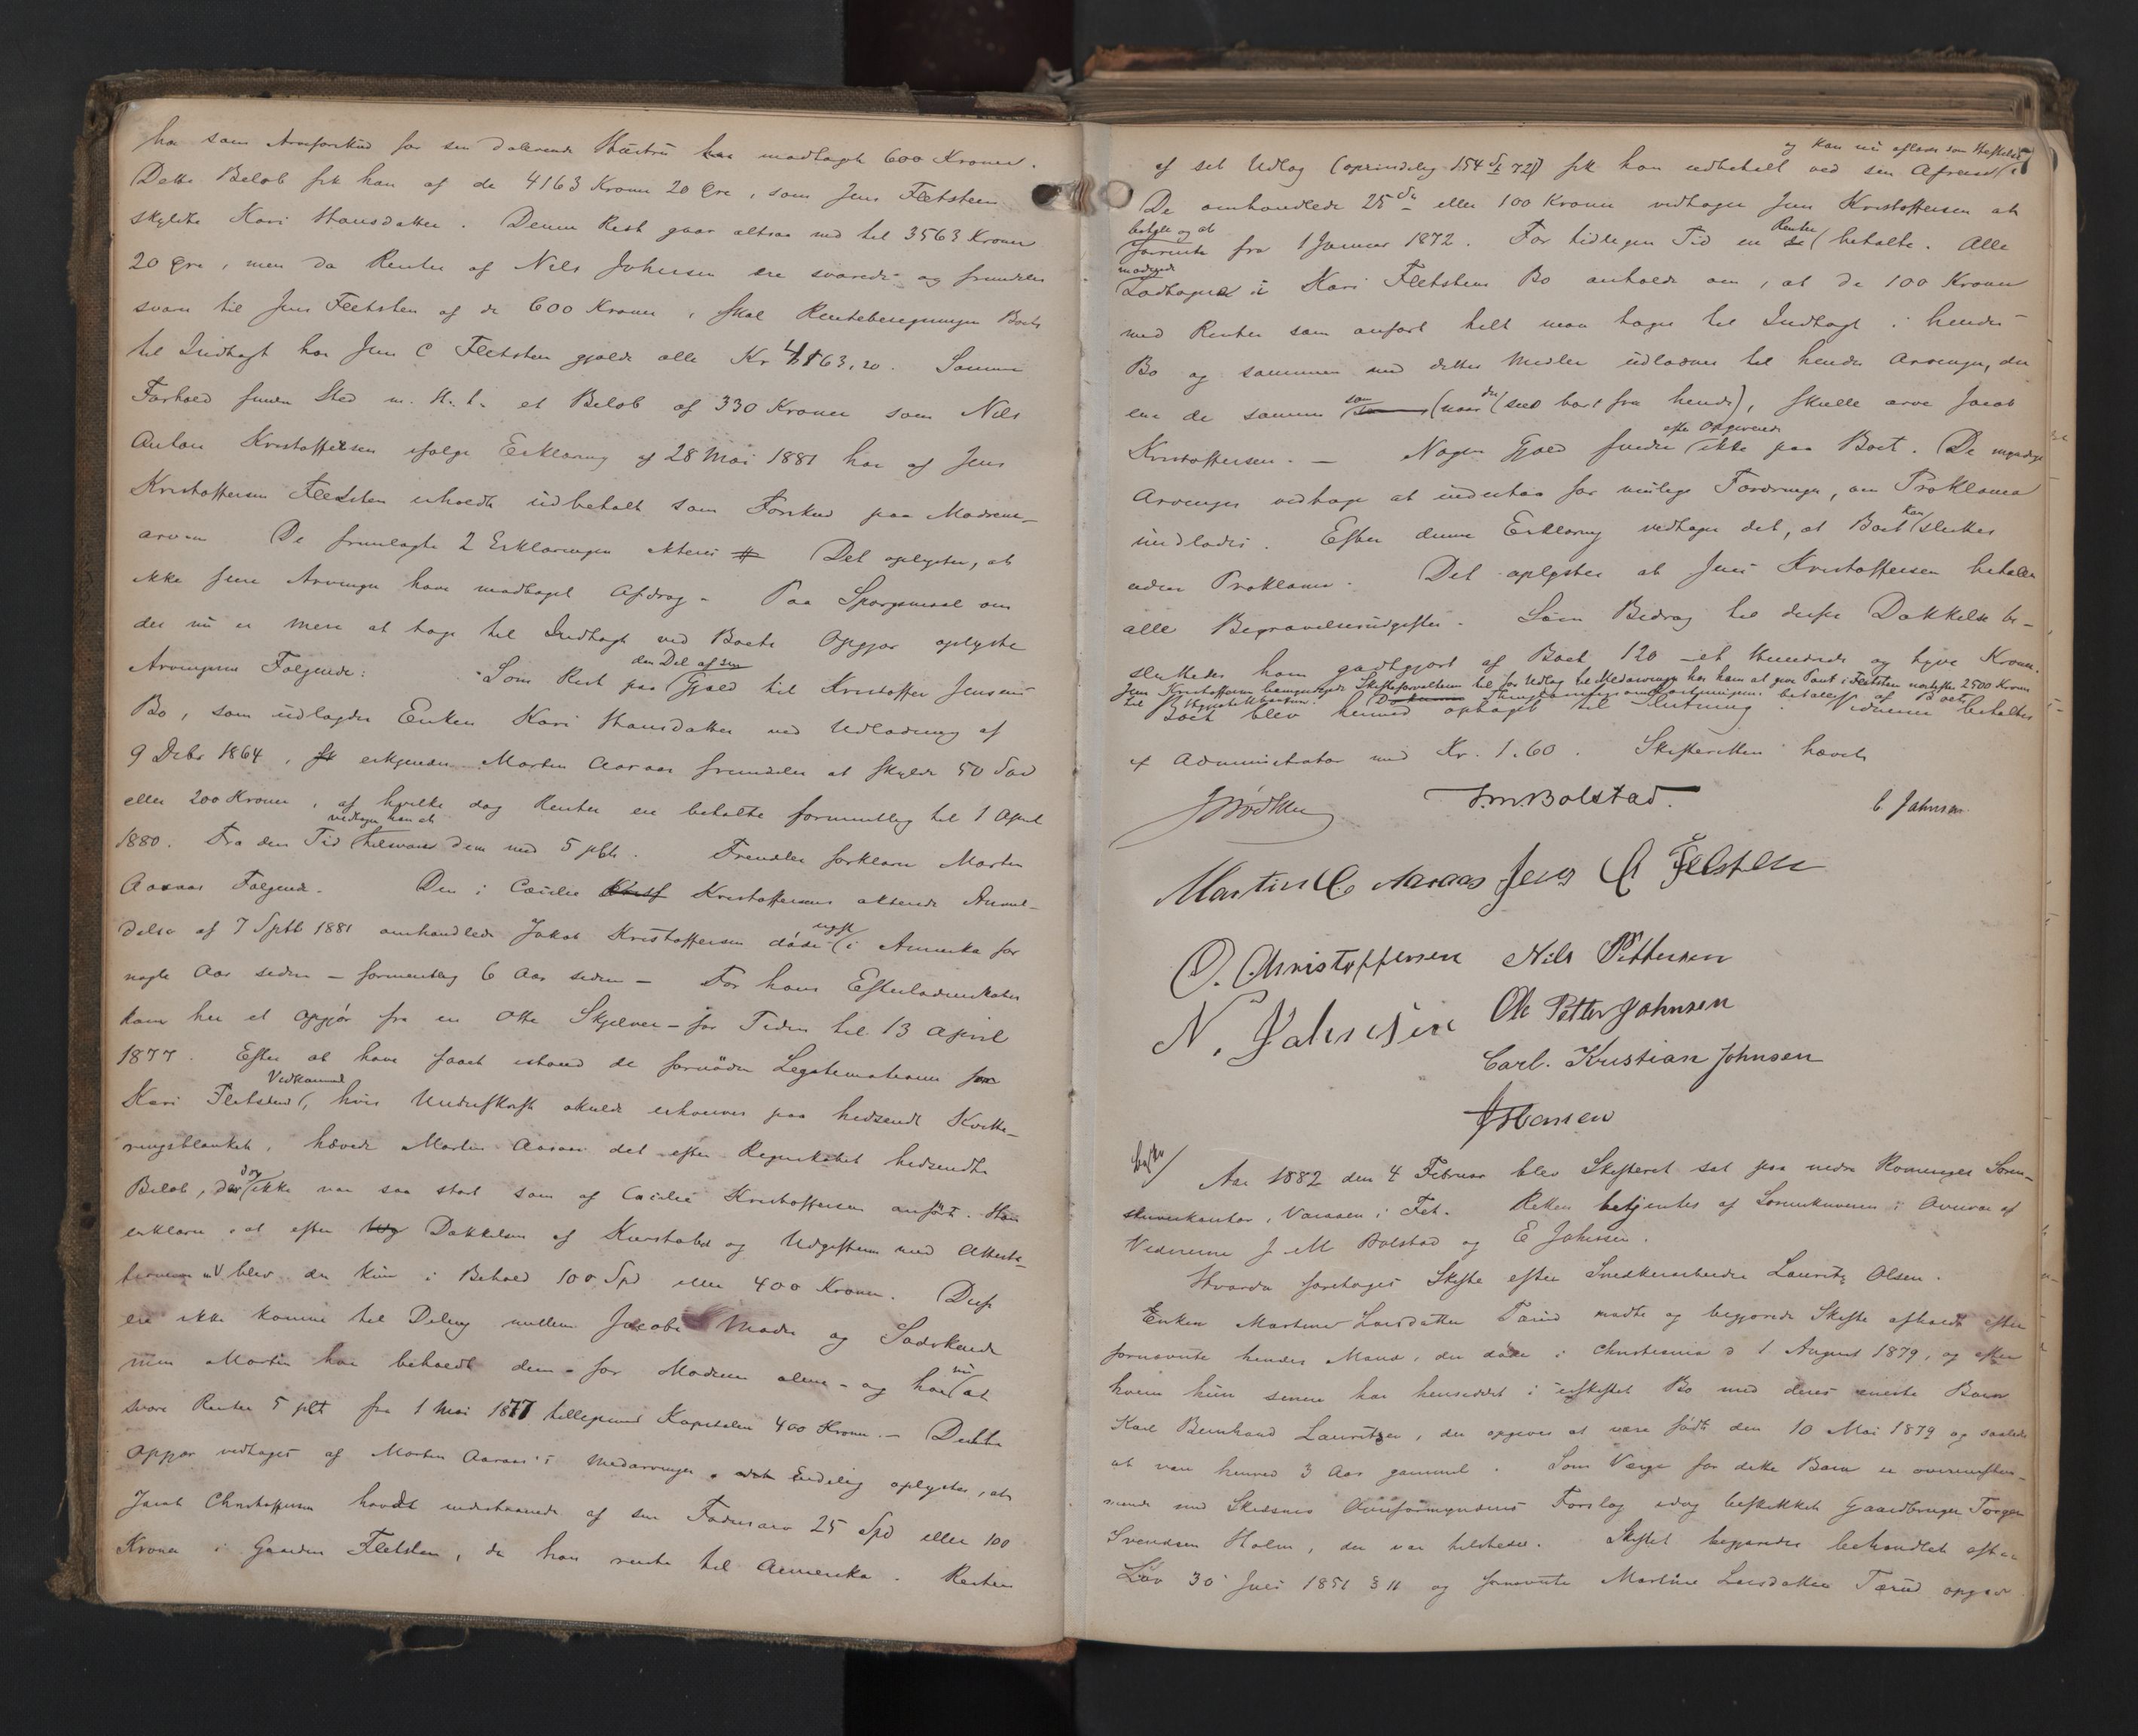 har som Arveforskud for sin dalevende Hustru har modtaget 600 Kroner.
Dette Beløb fik han af de 4163 Kroner 20 Øre, som Jens Fletsteen
skyldte Kari Hansdatter. Denne Rest gaar altsaa ned til 3563 Kroner
20 Øre, men da Renter af Nels Johnsen ere svarede og fremdeles
svares til Jens Fletsten af de 600 Kroner, skal Renteberegningen Boets
til Indtægt hos Jens C Fletsten gjælde alle Kr 4163,20. Samme
Forhold finder Sted m. H. t. et Beløb af 330 Kroner som Nils
Anton Kristoffersen ifølge Erklæring af 28 Mai 1881 har af Jens
Kristoffersen Fletsten erholdt udbetalt som Forskud paa Mødrene-
arven De fremlagte 2 Erklæringer akteres Det oplystes, at
ikke flere Arvinger have modtaget Afdrag - Paa Spørgsmaal om
der nu er mere at tage til Indtægt ved Boets Opgjør oplyste
Arvingerne Følgende: Som Rest paa den Del af sin Gjæld til Kristoffer Jensens
Bo, som udlagdes Enken Kari Hansdatter ved Udlodning af
9 Debr 1864, erkjender Martin Aaraas fremdeles at skylde 50 Spd
eller 200 Kroner, af hvilke dog Renter ere betalte formentlig til 1 April
1880. Fra den Tid vedtager han at tilsvare dem med 5 pCt. Fremdeles forklarer Martin
Aaraas Følgende. Den i Cecilie Kristoffersens akterede Anmel-
delse af 7 Septb 1881 omhandlede Jakob Kristoffersen døde ugift i Amerika for
nogle Aar siden - formentlig 6 Aar siden - For hans Efterladenskaber
kom her et Opgjør fra en Otto Skjelver - for Tiden til 13 April
1877. Efter at have faaet istand de fornødne Legitimationer for
Kari Fletstens Vedkommende, hvis Underskrift skulde erhverves paa hidsendt Kvitte-
ringsblanket, hævede Martin Aaraas det efter Regnskabet hidsendte
Beløb, der dog ikke var saa stort som af Cecilie Kristoffersen anført. Han
erklærer, at efter Dækkelsen af Kurstabet og Udgifterne med Attesta-
tionen blev der kun i Behold 100 Spd eller 400 Kroner. Disse
ere ikke komne til Deling mellem Jacobs Moder og Sødskende
men Martin har beholdt dem - for Moderen alene - og har nu at
svare Renter 5 pCt fra 1 Mai 1877 tilligemed Kapitalen 400 Kroner. - Dette
Opgjør vedtages af Martin Aaraas's Medarvinger. Endelig oplystes, at
Jacob Christoffersen havde indestaaende af sin Fædrenearv 25 Spd eller 100
Kroner i Gaarden Fletsten, da han reiste til Amerika. Resten
og kan nu aflæses som Heftelse
af sit Udlæg (oprindelig 154 72) fik han udbetalt ved sin Afreise
De omhandlede 25 Spd eller 100 Kroner vedtager Jens Kristoffersen at
betale og at forrente fra 1 Januar 1872. For tidligere Tid ere Renter betalte. Alle
mødende Lodtagere i Kari Fletstens Bo anholdt om, at de 100 Kroner
med Renter som anført helt maa tages til Indtægt i hendes
Bo og sammen med dettes Midler udloddes til hendes Arvinger, der
ere de samme som (naar der sees bort fra hende), skulle arve Jacob
Kristoffersen. - Nogen Gjæld findes efter Opgivende ikke paa Boet. De myndige
Arvinger vedtage at indestaa for mulige Fordringer, om Proklama
undlades. Efter denne Erklæring vedtages det, at Boet kan sluttes
uden Proklama. Det oplystes at Jens Kristoffersen betaler
alle Begravelsesudgifter. Som Bidrag til disses Dækkelse be-
sluttedes ham godtgjort af Boet 120 - et Hundrede og tyve Kroner.
Jens Kristoffersen bemyndigede Skifteforvalteren til for Udlæg til Medarvinger hos ham at give Pant i Fletsten næstefter 2500 Kroner
til Hypothekbanken. Thinglæsnings betales af Boet
Boet blev hermed optaget til Slutning. Vidnerne betaltes
af Administrator med Kr. 1.60. Skifteretten hævet
J.M.Bolstad. E. Johnsen
Martin C. Aaraas Jens C Fletsten
O. Christoffersen Nils Pettersen
N. Johnsen Ole Petter Johnsen
Carl. Kristian Johnsen
J Hansen
Aar 1882 den 4 Februar blev Skifteret sat paa nedre Romeriges Soren-
skriverkontor, Varaaen i Fet. Retten betjentes af Sorenskriveren i Overvær af
Vidnerne J M Bolstad og E Johnsen.
Hvorda foretoges Skifte efter Snedkerarbeider Lauritz Olsen.
Enken Martine Larsdatter Tærud mødte og begjærede Skifte afholdt efter
fornævnte hendes Mand, der døde i Christiania d 1 August 1879, og efter
hvem hun senere har hensiddet i uskiftet Bo med deres eneste Barn
Karl Bernhard Lauritzen, der opgives at være født den 10 Mai 1879 og saaledes
at være henved 3 Aar gammel. Som Værge for dette Barn er overensstem-
mende med Skedsmo Overformynderis Forslag idag beskikket Gaardbruger Torger
Svendsen Holm, der var tilstede. Skiftet begjæredes behandlet efter
Lov 30 Juli 1851 § 11 og fornævnte Martine Larsdatter Tærud opgav